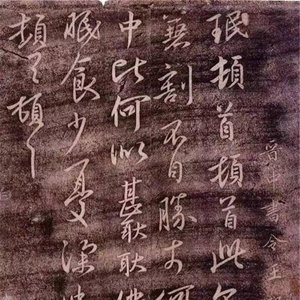 晉中書令王
珉頓首頓首此
割不自勝
中比何似甚耿耿
眠食少憂深
頓首頓首